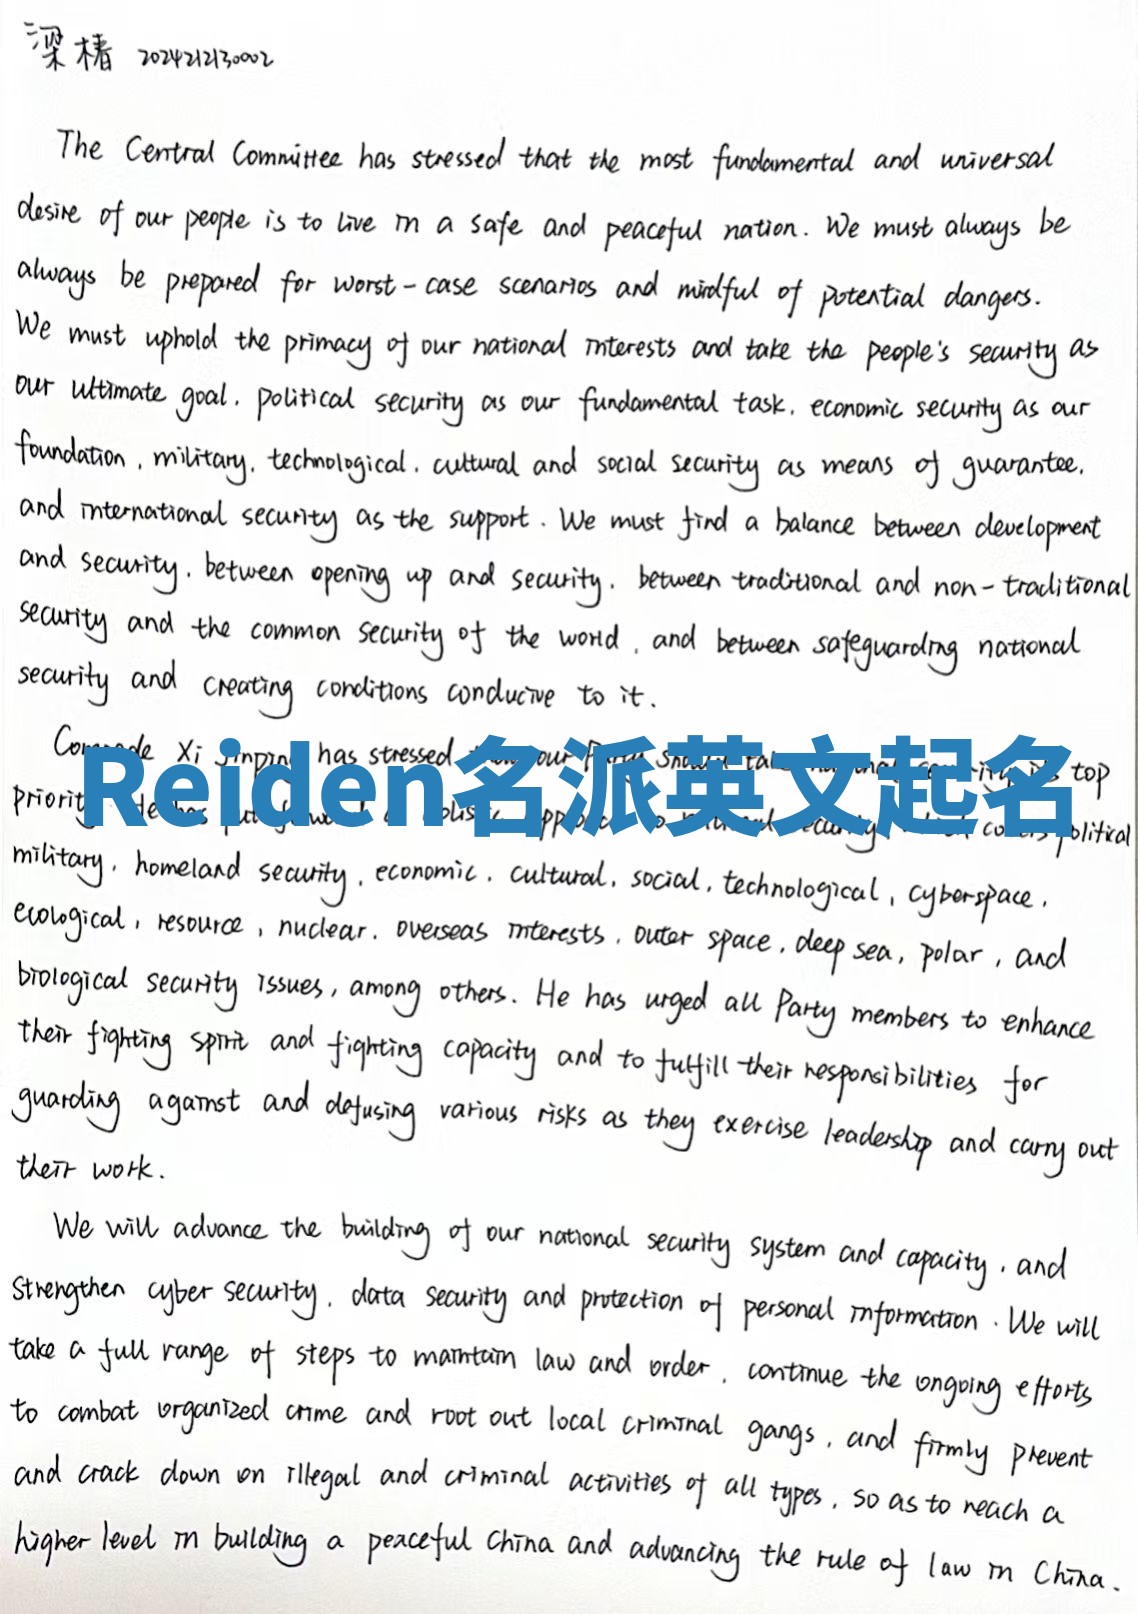 梁椿 2024212130002
The Central Committee has stressed that the most fundamental and universal
desire of our people is to live in a safe and peaceful nation. We must always be
always be prepared for worst-case scenarios and mindful of potential dangers.
We must uphold the primacy of our national interests and take the people's security as
our ultimate goal, political security as our fundamental task, economic security as our
foundation, military, technological, cultural and social security as means of guarantee,
and international security as the support. We must find a balance between development
and security, between opening up and security, between traditional and non-traditional
security and the common security of the world, and between safeguarding national
security and creating conditions conducive to it.
Xi Jinping has stressed our top
Reiden名派英文起名
political
military, homeland security, economic, cultural, social, technological, cyberspace,
ecological, resource, nuclear, overseas interests, outer space, deep sea, polar, and
biological security issues, among others. He has urged all Party members to enhance
their fighting spirit and fighting capacity and to fulfill their responsibilities for
guarding against and defusing various risks as they exercise leadership and carry out
their work.
We will advance the building of our national security system and capacity, and
strengthen cyber security, data security and protection of personal information. We will
take a full range of steps to maintain law and order, continue the ongoing efforts
to combat organized crime and root out local criminal gangs, and firmly prevent
and crack down on illegal and criminal activities of all types, so as to reach a
higher level in building a peaceful China and advancing the rule of law in China.